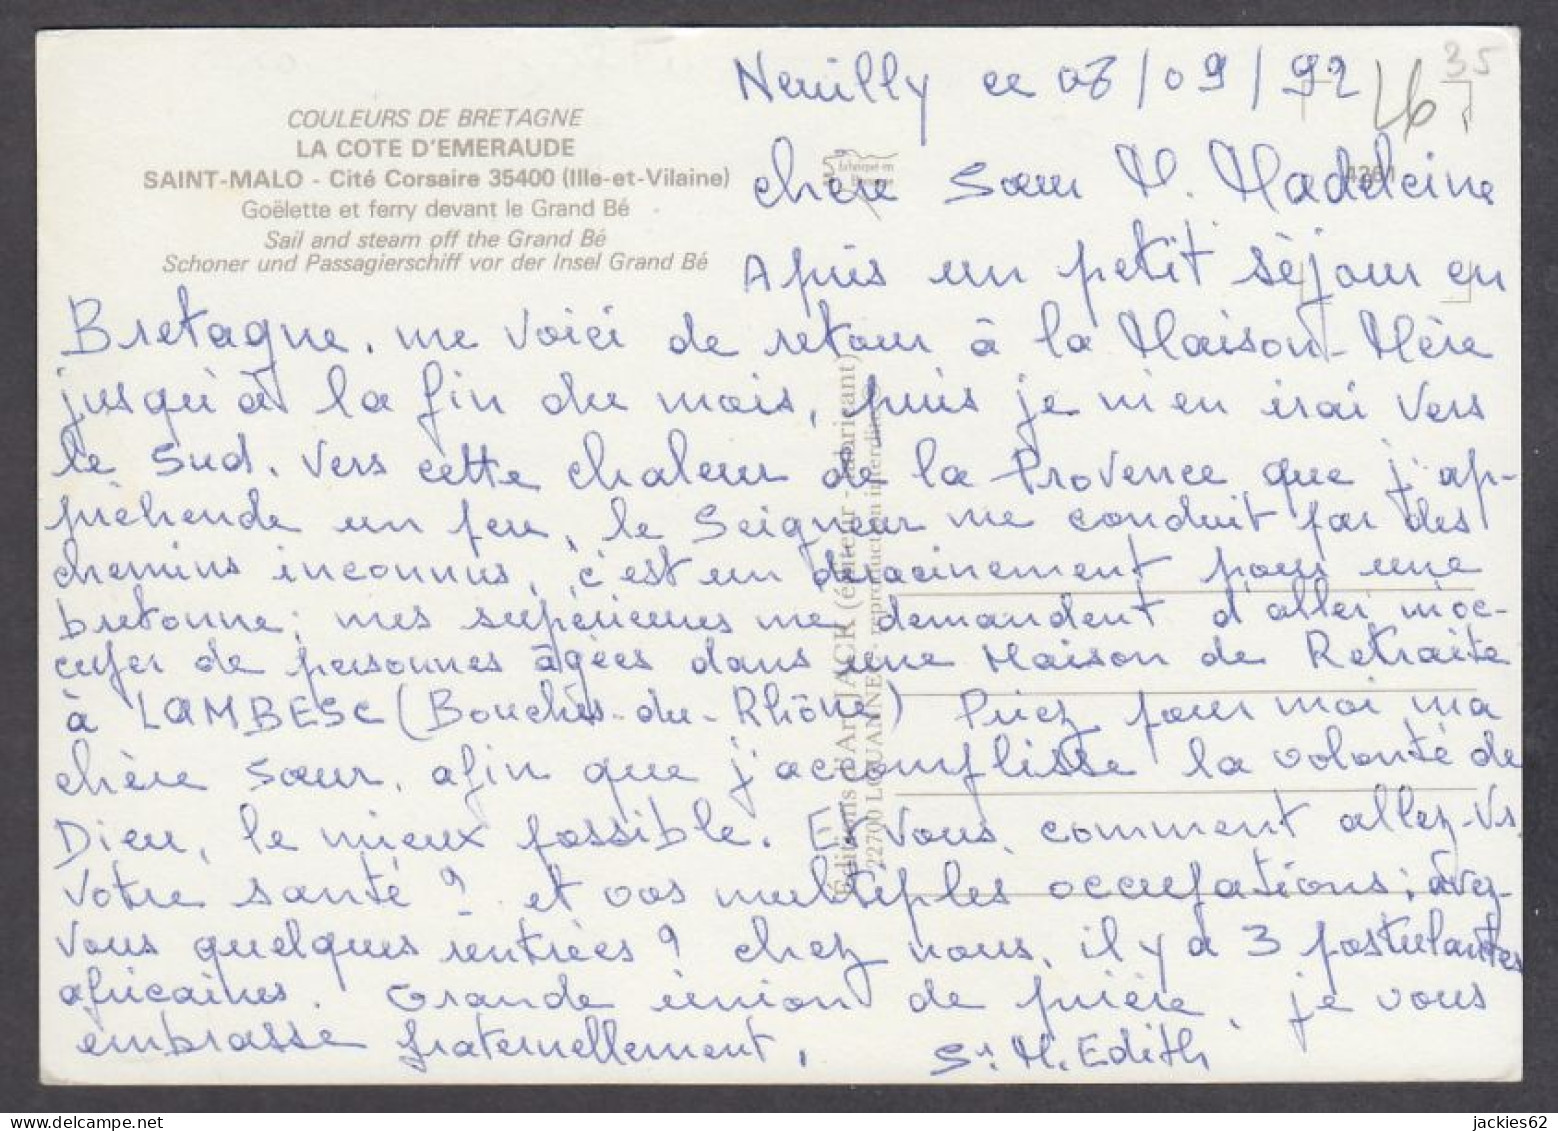 COULEURS DE BRETAGNE
LA COTE D'EMERAUDE
SAINT-MALO - Cité Corsaire 35400 (Ille-et-Vilaine)
Goëlette et ferry devant le Grand Bé
Sail and steam off the Grand Bé
Schoner und Passagierschiff vor der Insel Grand Bé
35
Neuilly ce 08/09/92
chère Sœur M. Madeleine
Après un petit séjour en
Bretagne, me voici de retour à la Maison-Mère
jusqu'à la fin du mois, puis je m'en irai vers
le Sud, vers cette chaleur de la Provence que j'ap-
préhende un peu, le Seigneur me conduit par des
chemins inconnus, c'est un déracinement pour une
bretonne; mes supérieures me demandent d'aller m'oc-
cuper de personnes âgées dans une Maison de Retraite
à LAMBESC (Bouches-du-Rhône) Priez pour moi ma
chère Sœur, afin que j'accomplisse la volonté de
Dieu, le mieux possible. Et vous, comment allez-vs.
Votre santé ? et vos multiples occupations; avez-
vous quelques rentrées ? chez nous, il y a 3 postulantes
africaines. Grande union de prière, je vous
embrasse fraternellement,
Sr M. Edith
Editions d'Art JACK (éditeur - fabricant)
22700 LOUANNEC - reproduction interdite
jackies62